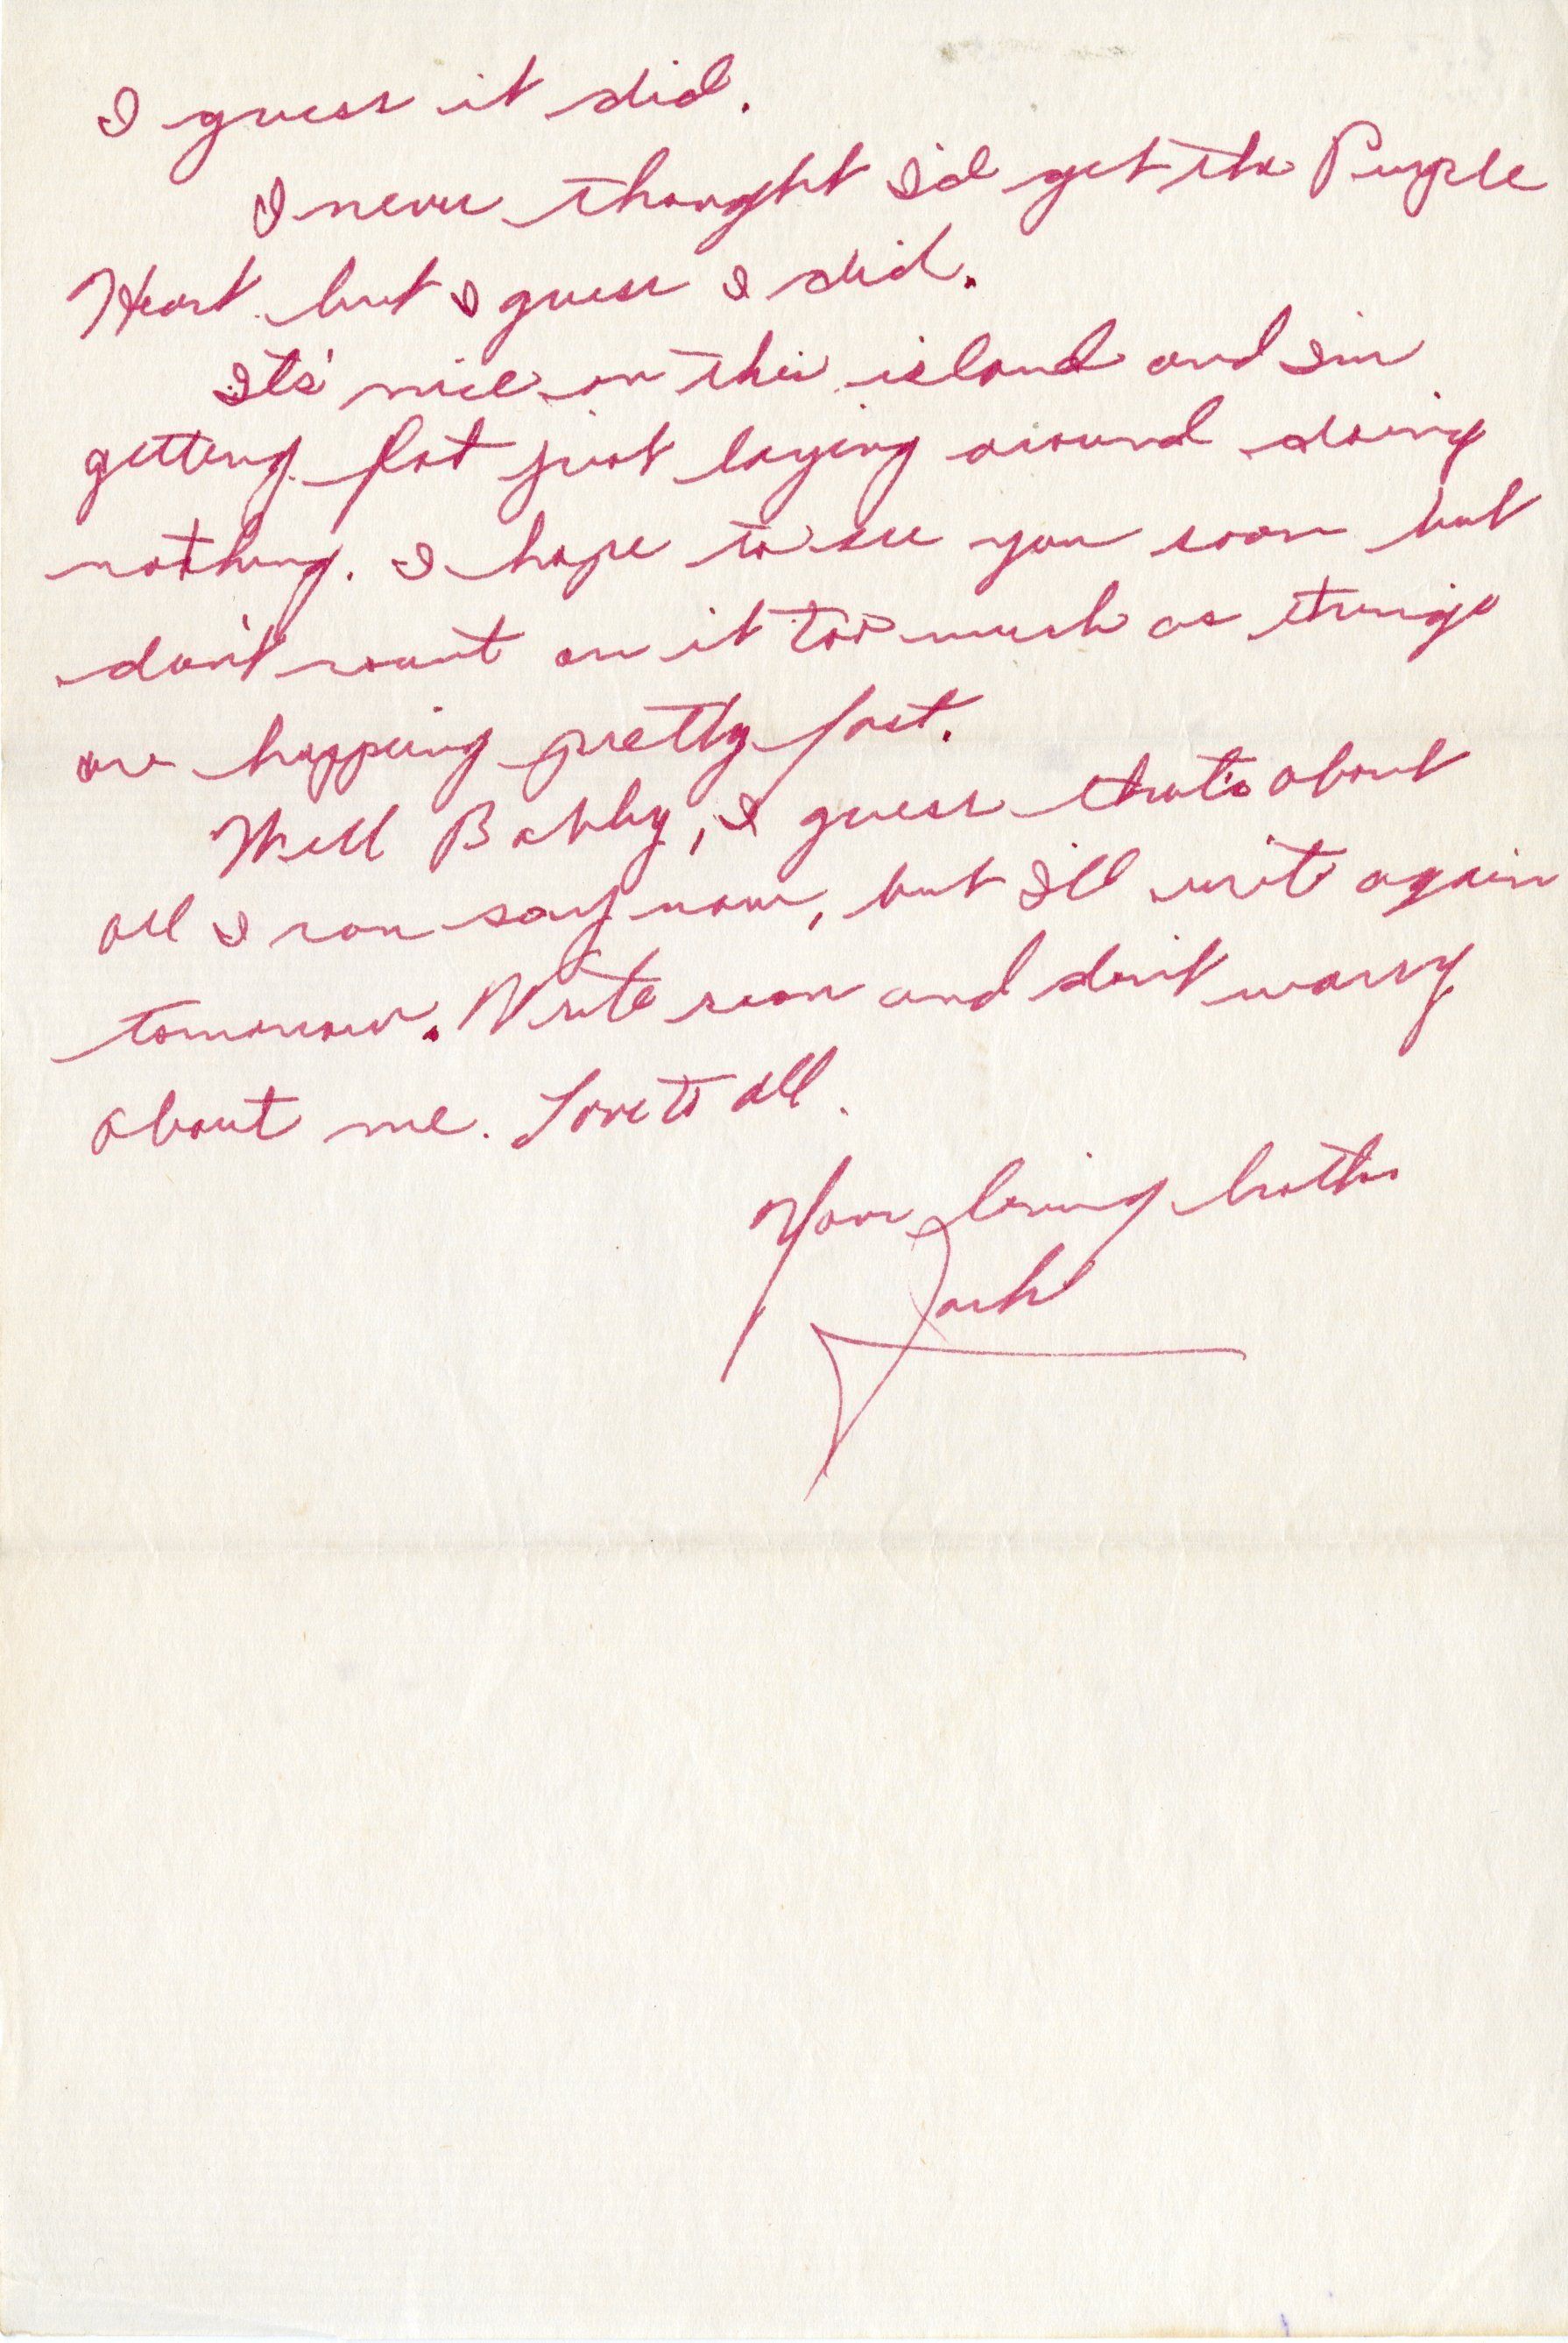 I guess it did.
I never thought I'd get the Purple
Heart but I guess I did.
It's nice on this island and I'm
getting fat just laying around doing
nothing. I hope to see you soon but
don't count on it too much as things
are happing pretty fast.
Well Bobby, I guess that's about
all I can say now, but I'll write again
tomorrow. Write soon and don't worry
about me. Love to all.
Your loving brother
Jack